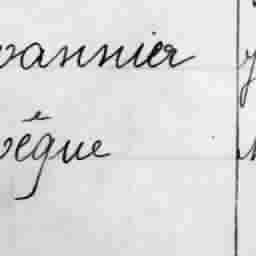 vannier
vêque